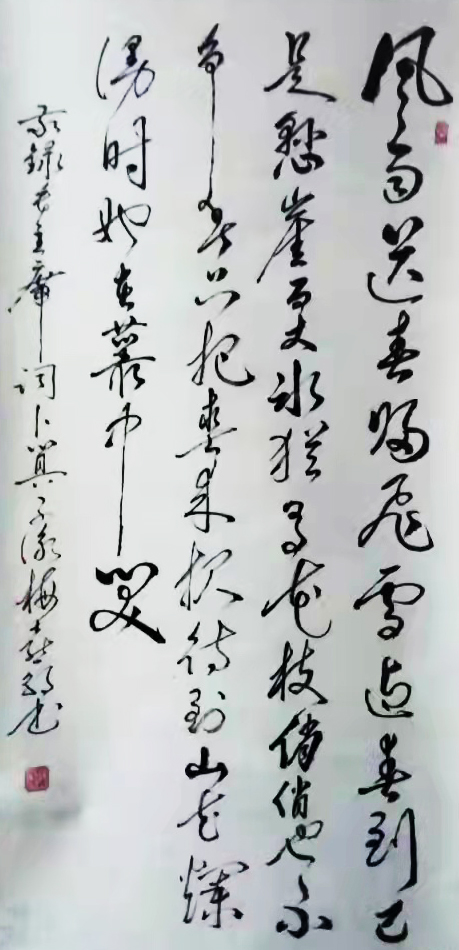 风雨送春归飞雪迎春到已
是懸崖百丈冰犹有花枝俏俏也不
争春只把春来报待到山花爛
漫时她在叢中笑
敬録毛主席词卜算子咏梅书